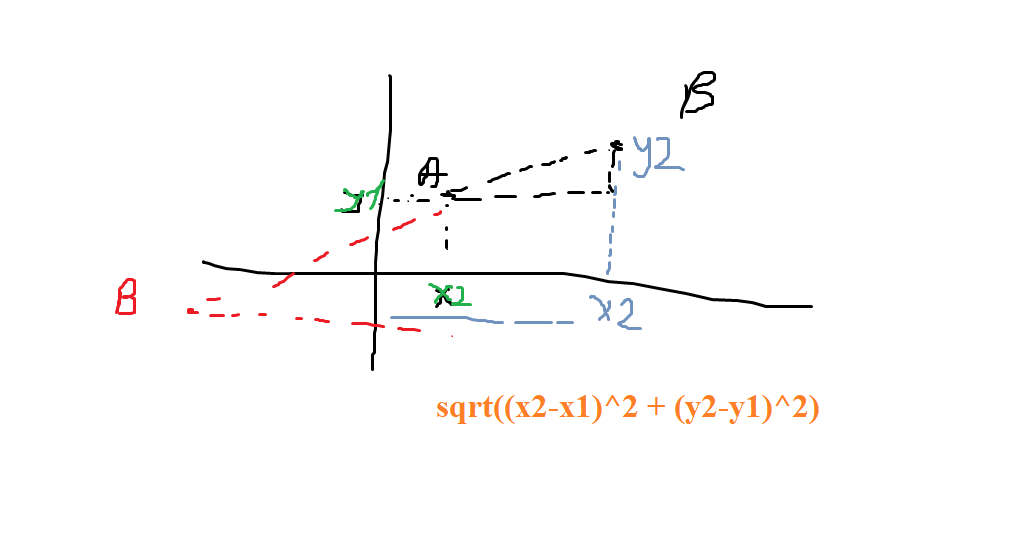 B
A
y2
y1
B
x1
x2
sqrt((x2-x1)^2 + (y2-y1)^2)